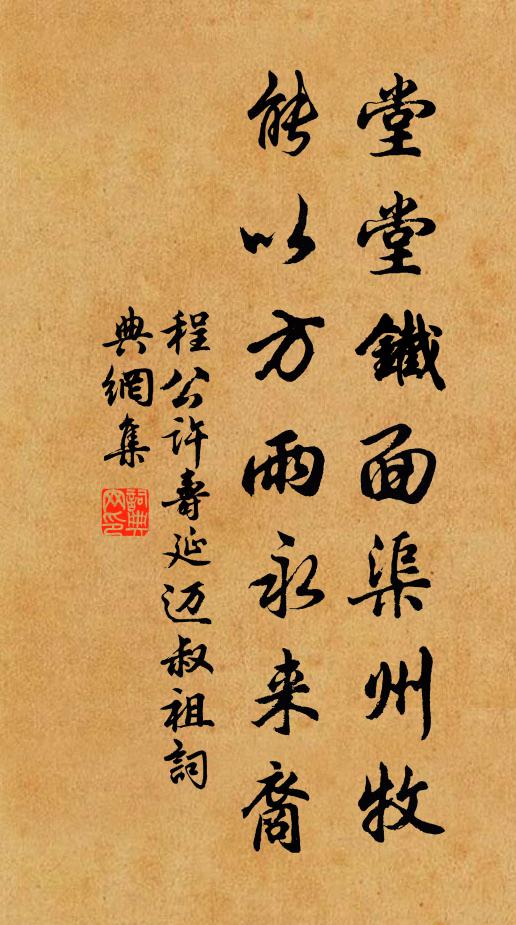 堂堂鐵面渠州牧
能以方兩永来裔
程公許壽延迈叔祖詞
典網集
詞典网印